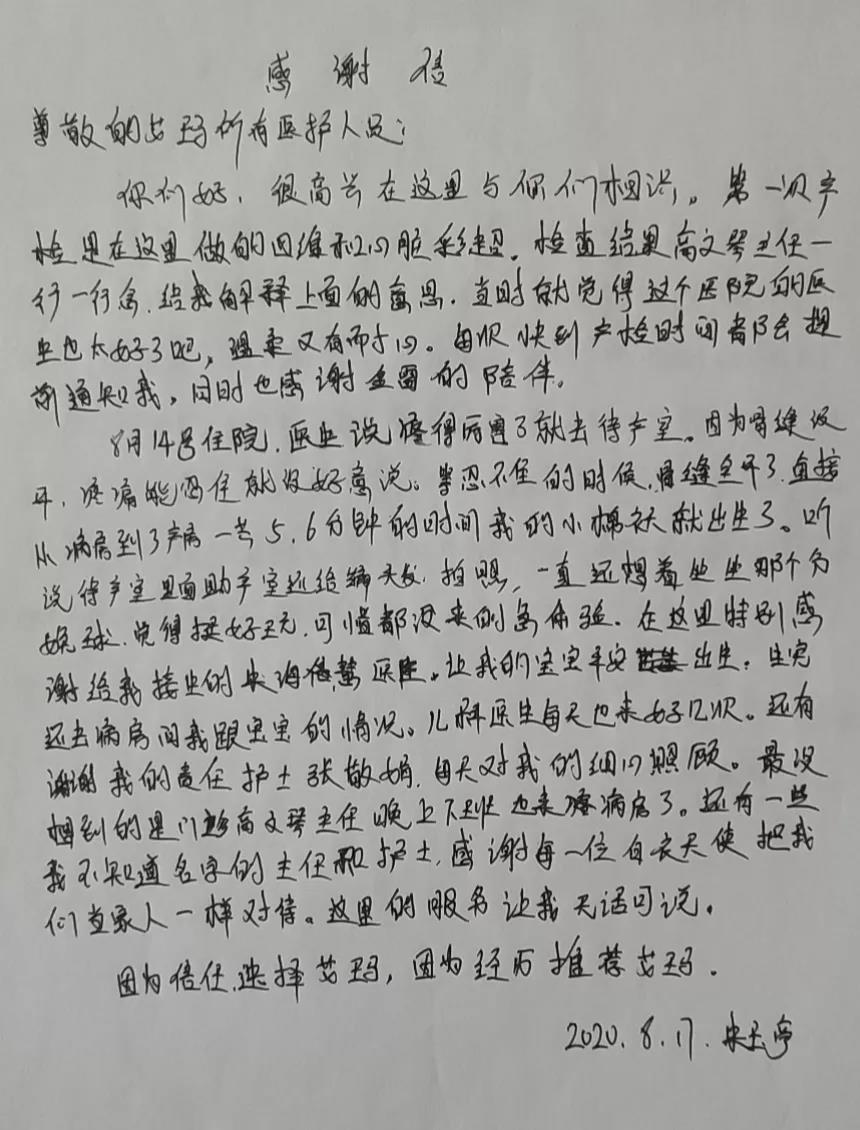 感谢信
尊敬的艾玛所有医护人员:
你们好,很高兴在这里与你们相识。第一次产
检是在这里做的四维和心脏彩超,检查结果高文琴主任一
行一行念,给我解释上面的意思,当时就觉得这个医院的医
生也太好了吧,温柔又有耐心。每次快到产检时间都会提
前通知我,同时也感谢 的陪伴。
8月14号住院,医生说疼得厉害了就去待产室。因为骨缝没
开,疼痛能忍住就没好意说。当忍不住的时候,骨缝全开了,直接
从病房到了产房一共5、6分钟的时间我的小棉袄就出生了。听
说待产室里面助产室还给编头发,拍照,一直还想着坐坐那个分
娩球,觉得挺好玩,可惜都没来的急体验。在这里特别感
谢给我接生的 医生。让我的宝宝平安出生,生完
还去病房问我跟宝宝的情况。儿科医生每天也来好几次。还有
谢谢我的责任护士张敏娟,每天对我的细心照顾。最没
想到的是门诊高文琴主任晚上下班也来病房了。还有一些
我不知道名字的主任和护士,感谢每一位白衣天使把我
们当家人一样对待。这里的服务让我无话可说。
因为信任,选择艾玛,因为经历推荐艾玛。
2020.8.17.